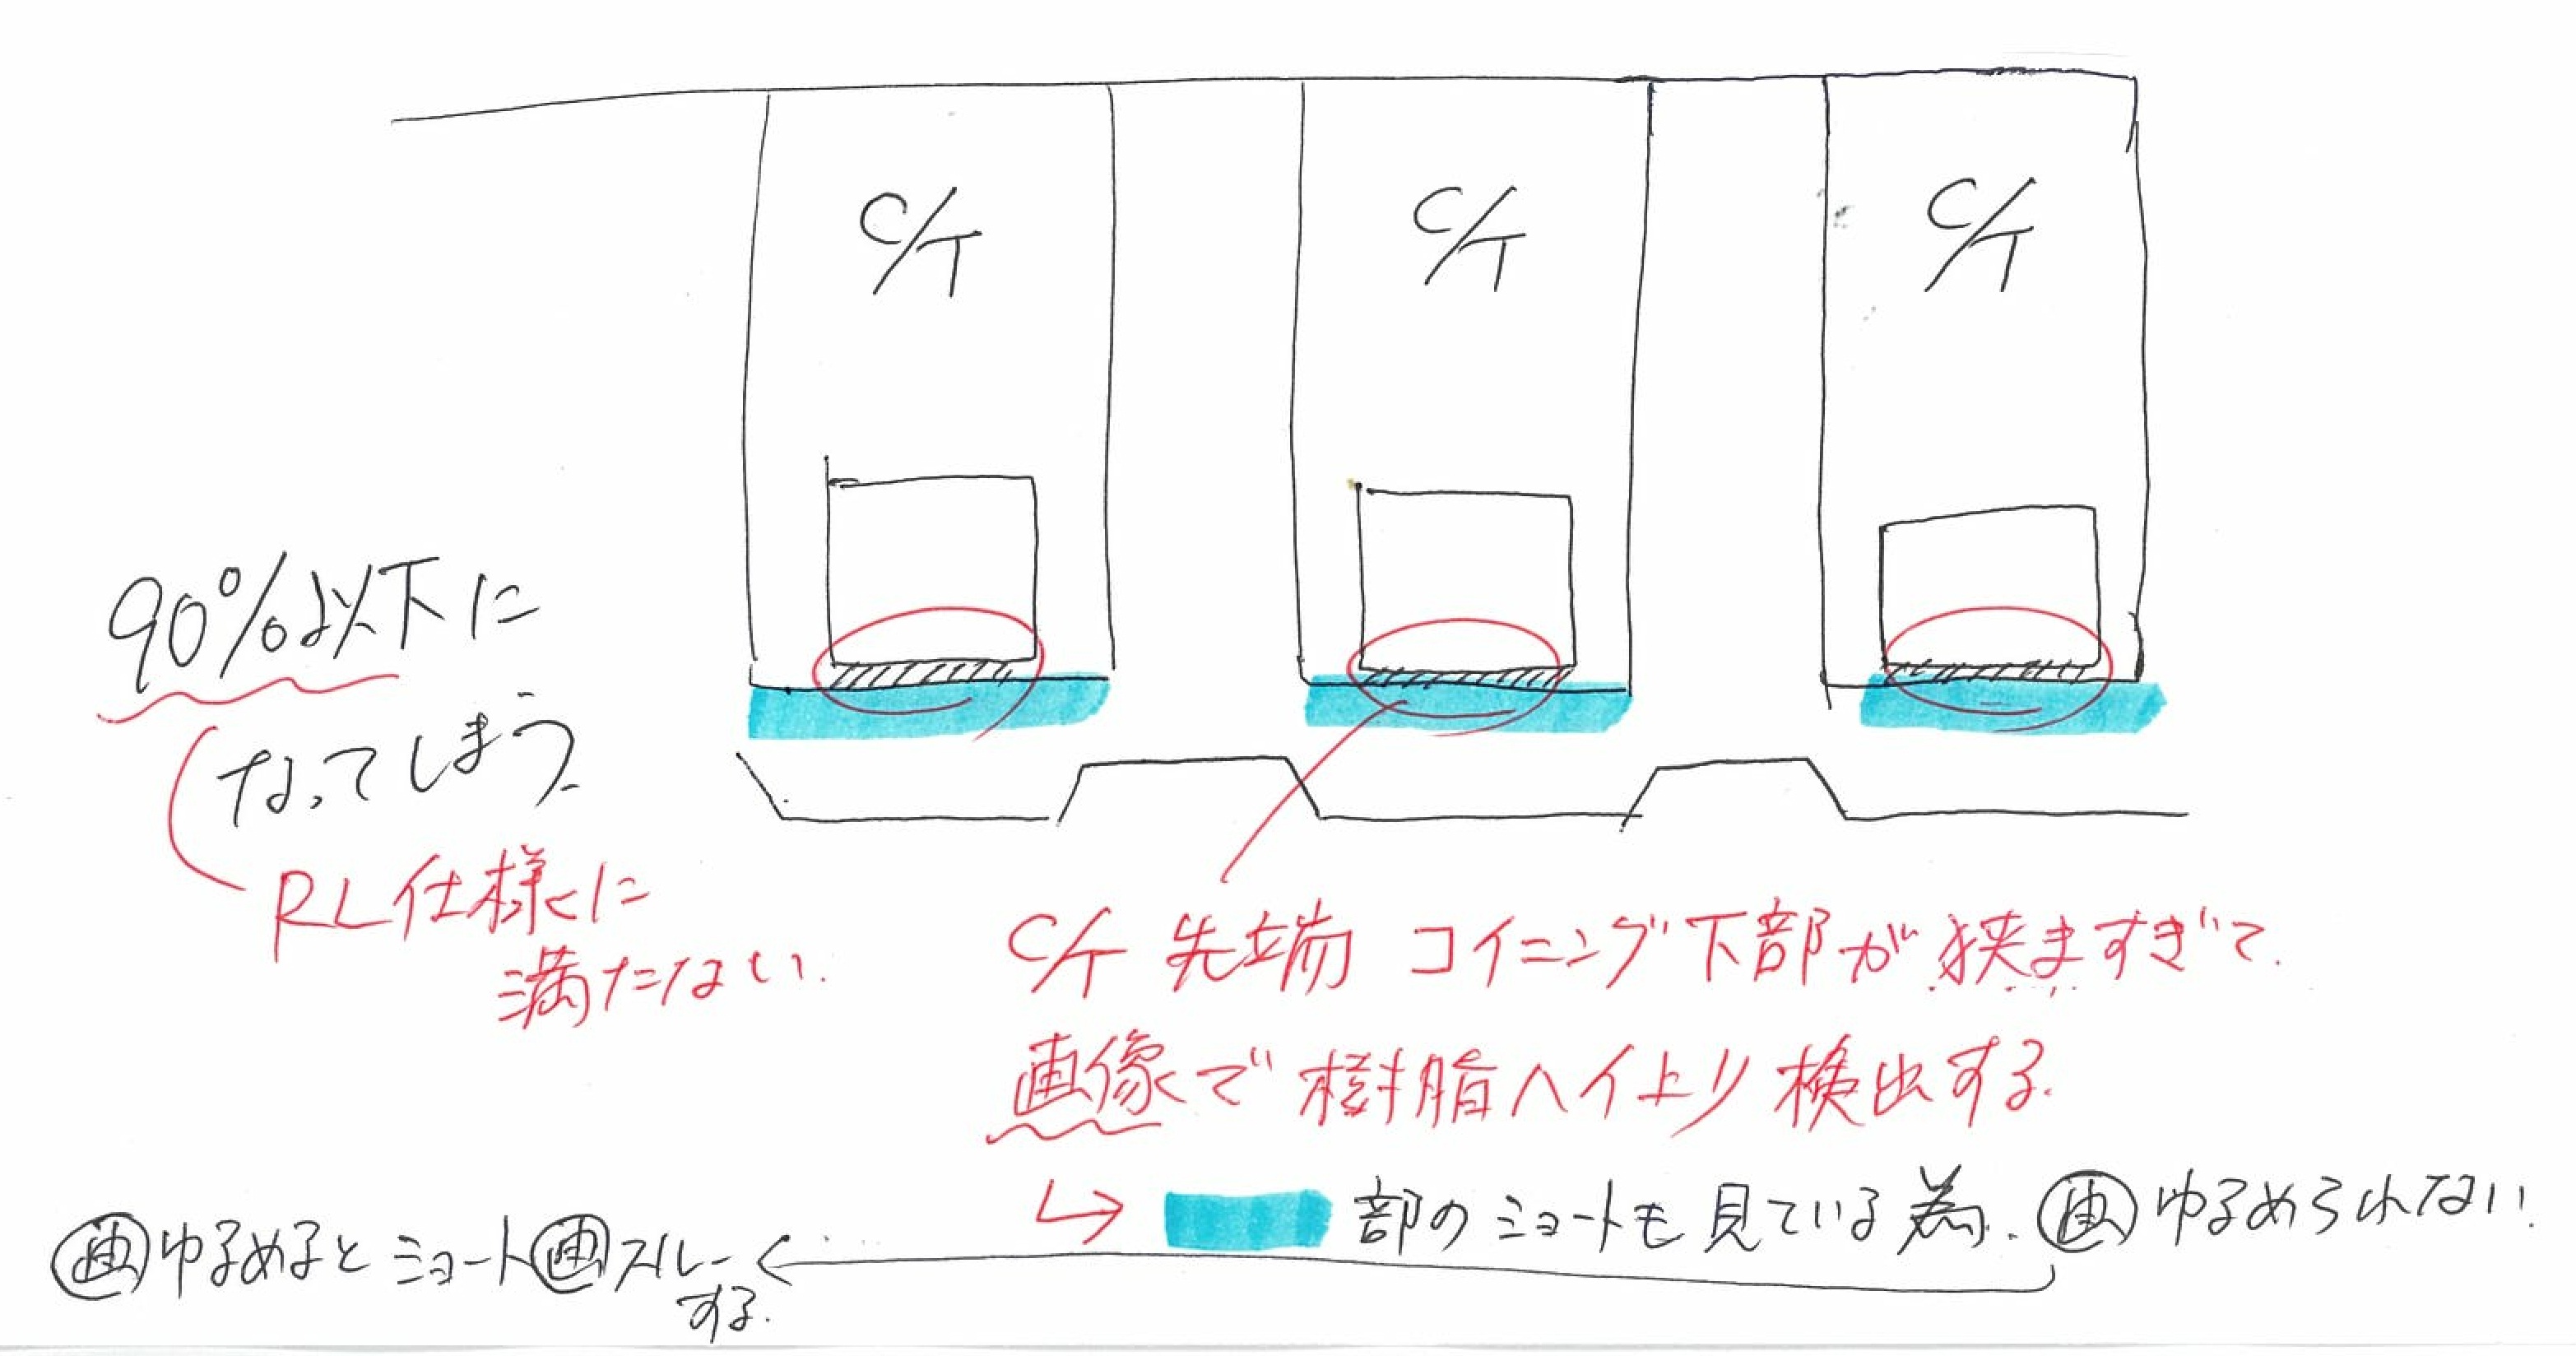 C/T
C/T
C/T
90%以下に
なってしまう.
RL仕様に
満たない.
C/T 先端 コイニング下部が狭ますぎて.
画像で樹脂ヘイより検出する.
部のショートも見ている為. 画ゆるめられない.
画ゆるめるとショート画スルー
する.